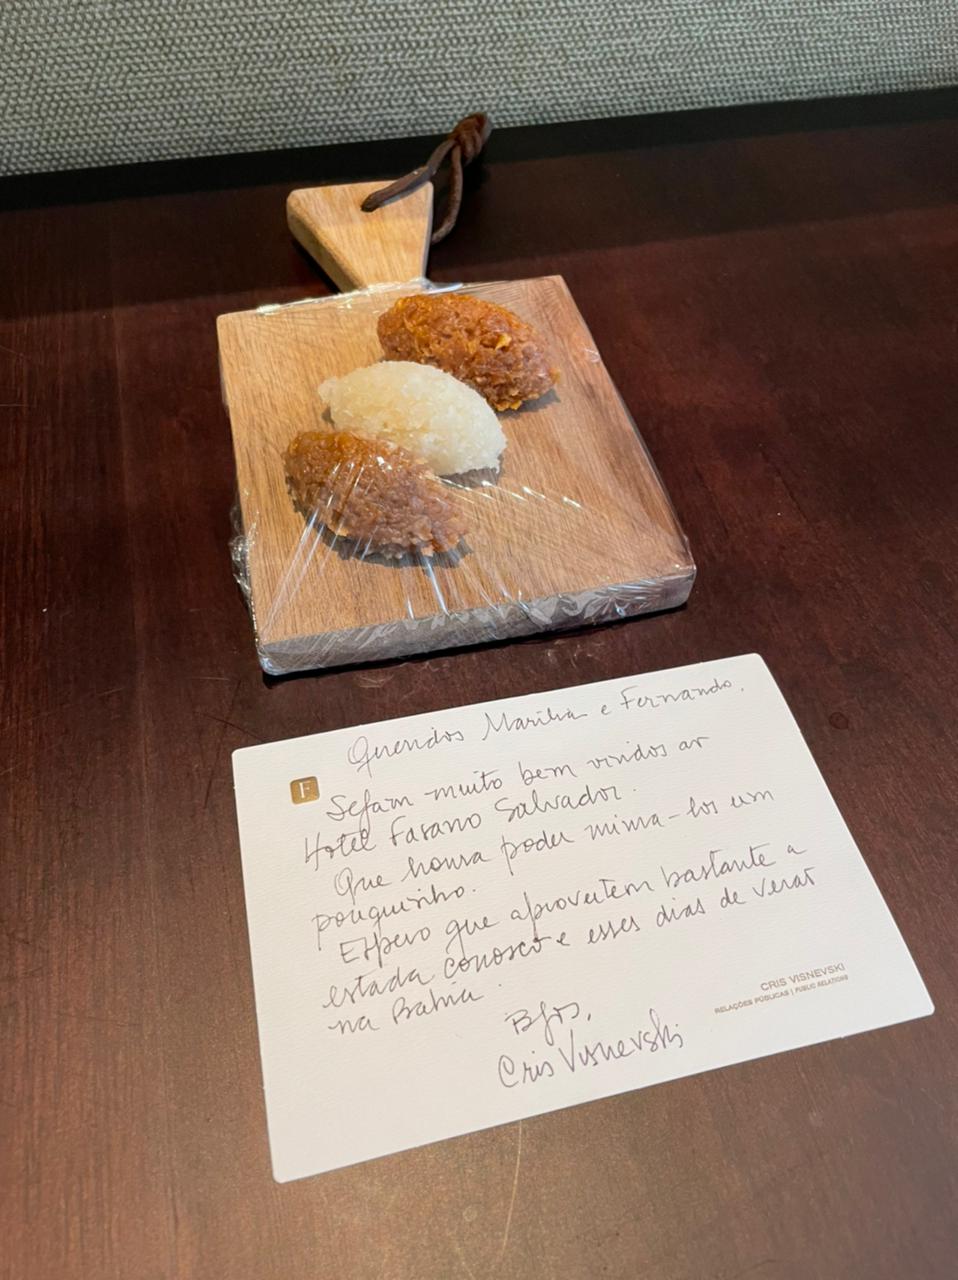 Queridos Marília e Fernando,
F
Sejam muito bem vindos ao
Hotel Fasano Salvador.
Que honra poder mima-los um
pouquinho.
Espero que aproveitem bastante a
estada conosco e esses dias de verão
na Bahia.
CRIS VISNEVSKI
RELAÇÕES PÚBLICAS | PUBLIC RELATIONS
Bjos,
Cris Visnevski